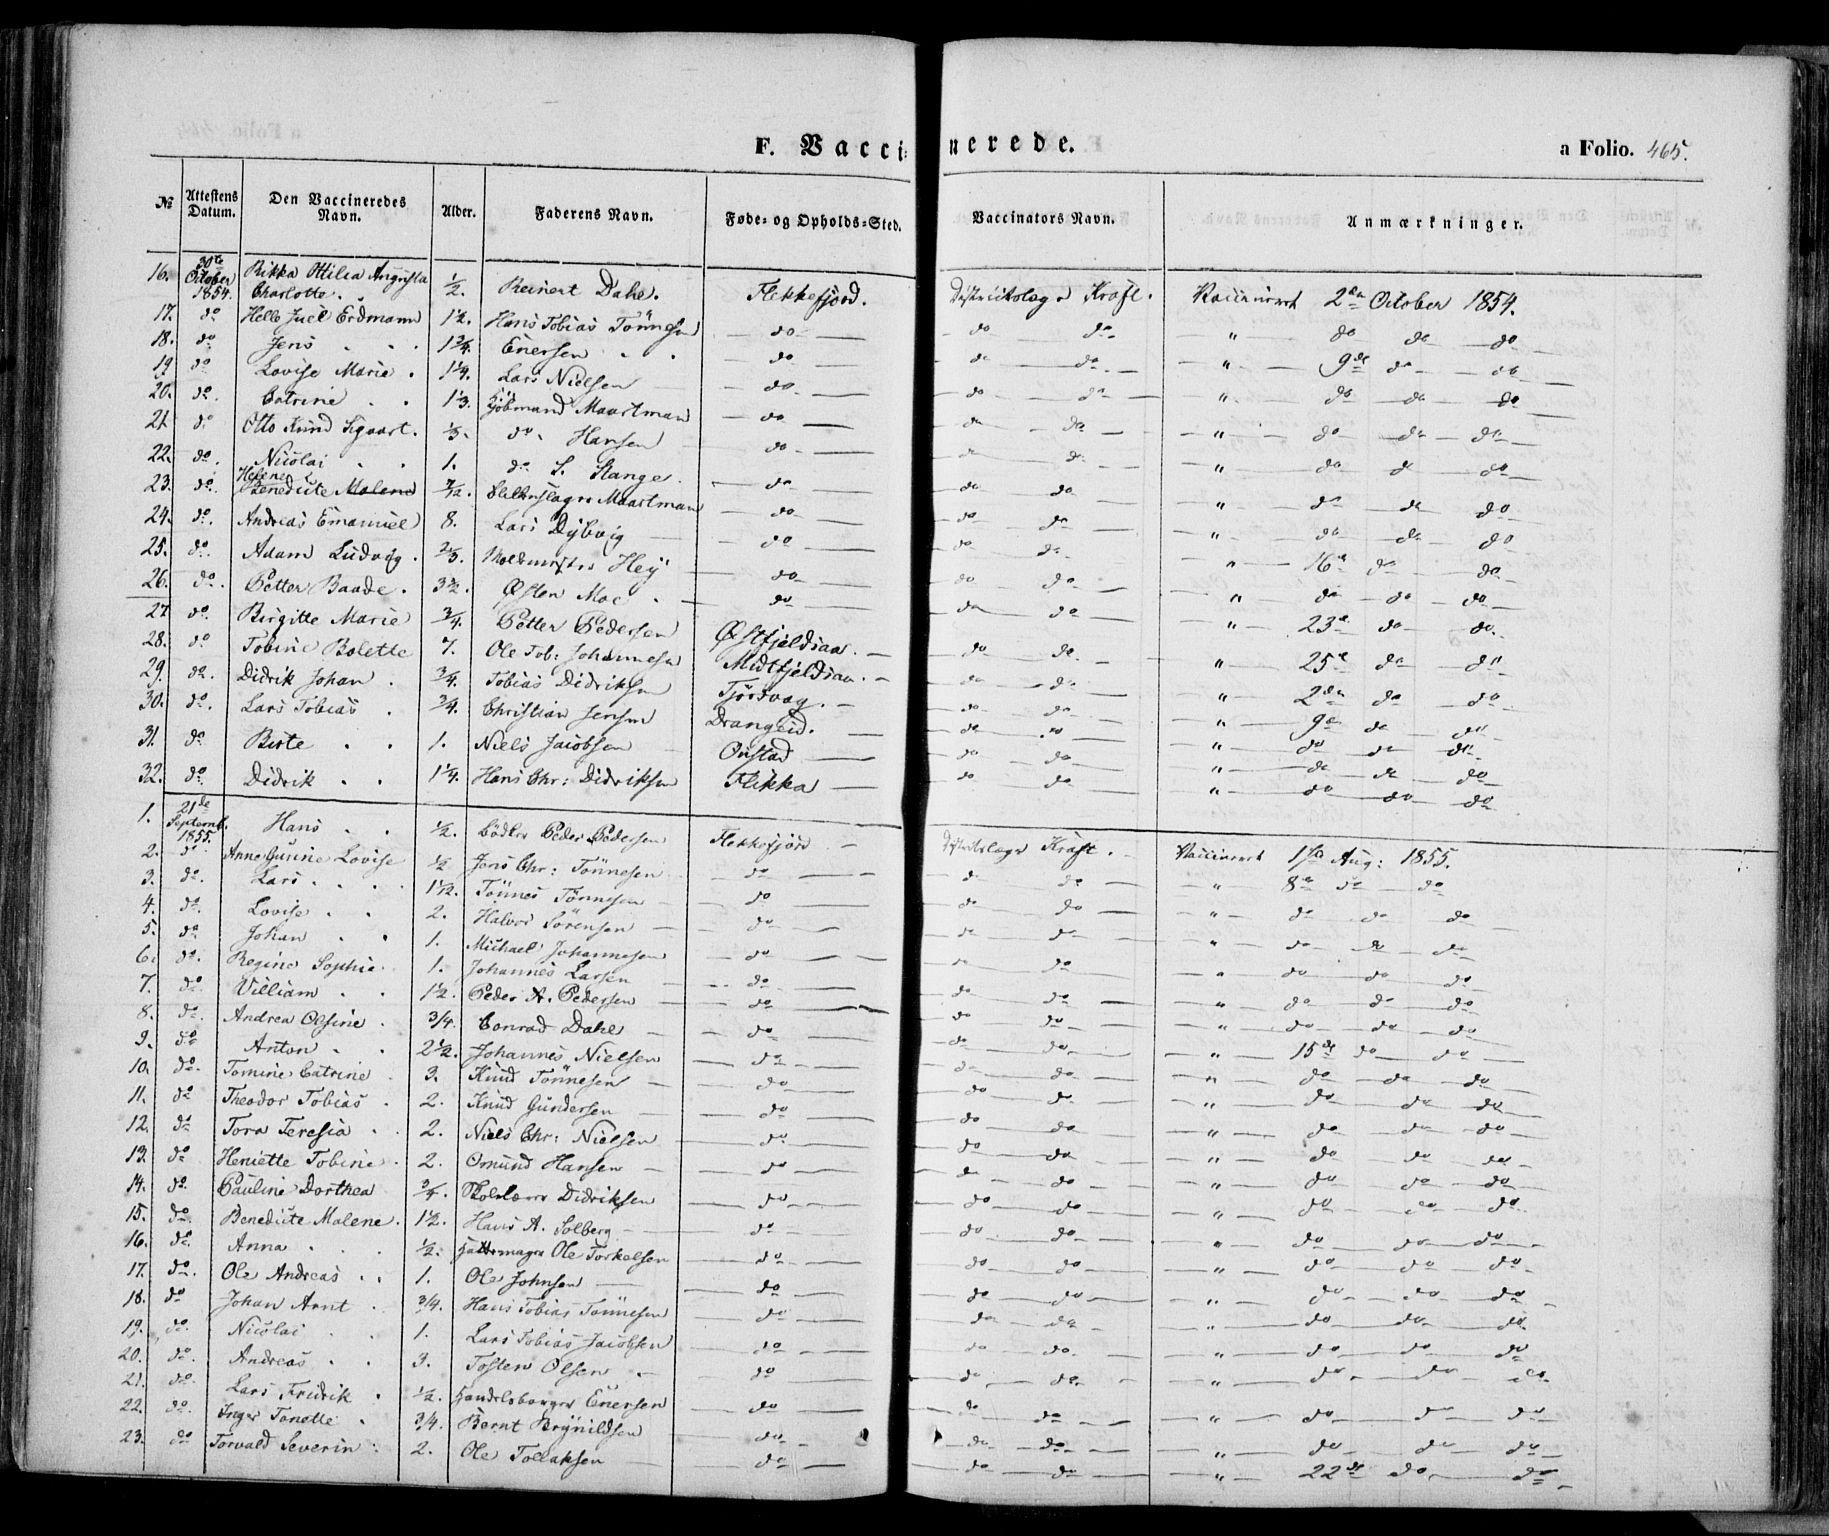 F. Vaccinerede.
a Folio. 465.
№ Attestens Datum. Den Vaccineredes Navn. Alder. Faderens Navn. Føde- og Opholds-Sted. Vaccinators Navn. Anmærkninger.
16. 30te October 1854. Rikka Ottilia Augusta Charlotte. 1/2. Reinert Dahl. Flekkefjord. Districtslæge Kraft. Vaccineret 2den October 1854.
17. do Helle Juel Erdmann 1 1/2. Hans Tobias Tönnesen do do do " do do do
18. do Jens 1 3/4. Enersen do do do " 9de do do
19 do Lovise Marie. 1 1/4. Lars Nielsen do do do " do do do
20. do. Catrine 1 1/3. Kjöbmand Maartman do do do " do do do
21. do Otto Knud Sigvart. 1/3. do. Hansen do do do " do do do
22. do. Nicolai 1. do S. Stange. do do do " do do do
23. do. Helene Benedicte Malene 7/12. Maartman do do do " do do do
24. do. Andreas Emanuel 8. Lars Dybvig do do do " 16de do do
25. do. Adam Ludvig. 2/3. Hey do do do " do do do
26. do. Petter Baade. 3 1/2. Østen Moe do do do " 23de do do.
27 do. Birgitte Marie 3/4. Petter Pedersen Østfjeldiaa. do do " 25de do do
28. do Tobine Bolette 7. Ole Tob: Johannesen Midtfjeldiaa. do do " 2den do do
29. do. Didrik Johan. 3/4. Tobias Didriksen Tjörsvag. do do " 9de do do
30. do. Lars Tobias. 3/4. Christian Jensen Drangeid. do do " do do do
31. do Birte 1. Niels Jacobsen Onstad do do " do do do
32. do Didrik 1 1/4. Hans Chr: Didriksen Flikka do do " do do do
1. 21de Septemb. 1855. Hans 1/2. Bödker Peder Pedersen Flekkefjord Districtslæge Kraft. Vaccineret 1ste Aug: 1855.
2. do Anne Gurine Lovise 1/2 Jens Chr: Tönnesen do do do " 8de do do
3. do. Lars 1 1/12. Tönnes Tönnesen do do do " do do do
4. do. Lovise 2. Halvor Sörensen do do do " do do do
5. do Johan 1. Michael Johannesen do do do " do do do
6. do. Regine Sophie. 1. Johannes Larsen do do do " do do do
7. do. Villiam 1 1/2. Peder A. Pedersen do do do " do do do
8. do. Andrea Olsine. 3/4. Conrad Dahl do do do " 15de do do
9. do Anton 2 1/2. Johannes Nielsen do do do " do do do
10. do. Tomine Catrine 3. Knud Tönnesen do do do " do do do
11. do Theodor Tobias. 2. Knud Gundersen do do do " do do do
12. do Tora Teresia 2. Niels Chr: Nielsen do do do " do do do
13. do Heniette Tobine. 2. Omund Hansen do do do " do do do
14. do. Pauline Dorthea 3/4. Skolelærer Didriksen do do do " do do do
15. do. Benedicte Malene. 1 1/2. Hans A. Solberg do do do " do do do
16. do. Anna 1/2. Hattemager Ole Torkelsen do do do " do do do
17. do. Ole Andreas 1. Ole Johnsen do do do " do do do
18. do Johan Arnt 3/4. Hans Tobias Tönnesen do do do " do do do
19. do. Nicolai 1. Lars Tobias Jacobsen do do do " do do do
20. do. Andreas 3. Tosten Olsen do do do " do do do
21. do. Lars Fredrik. 1/2. Handelsborger Enersen do do do " do do do
22. do. Inger Tonette. 3/4. Bernt Brynildsen do do do " do do do
23. do Torvald Severin. 2. Ole Tollaksen do do do " 22de do do